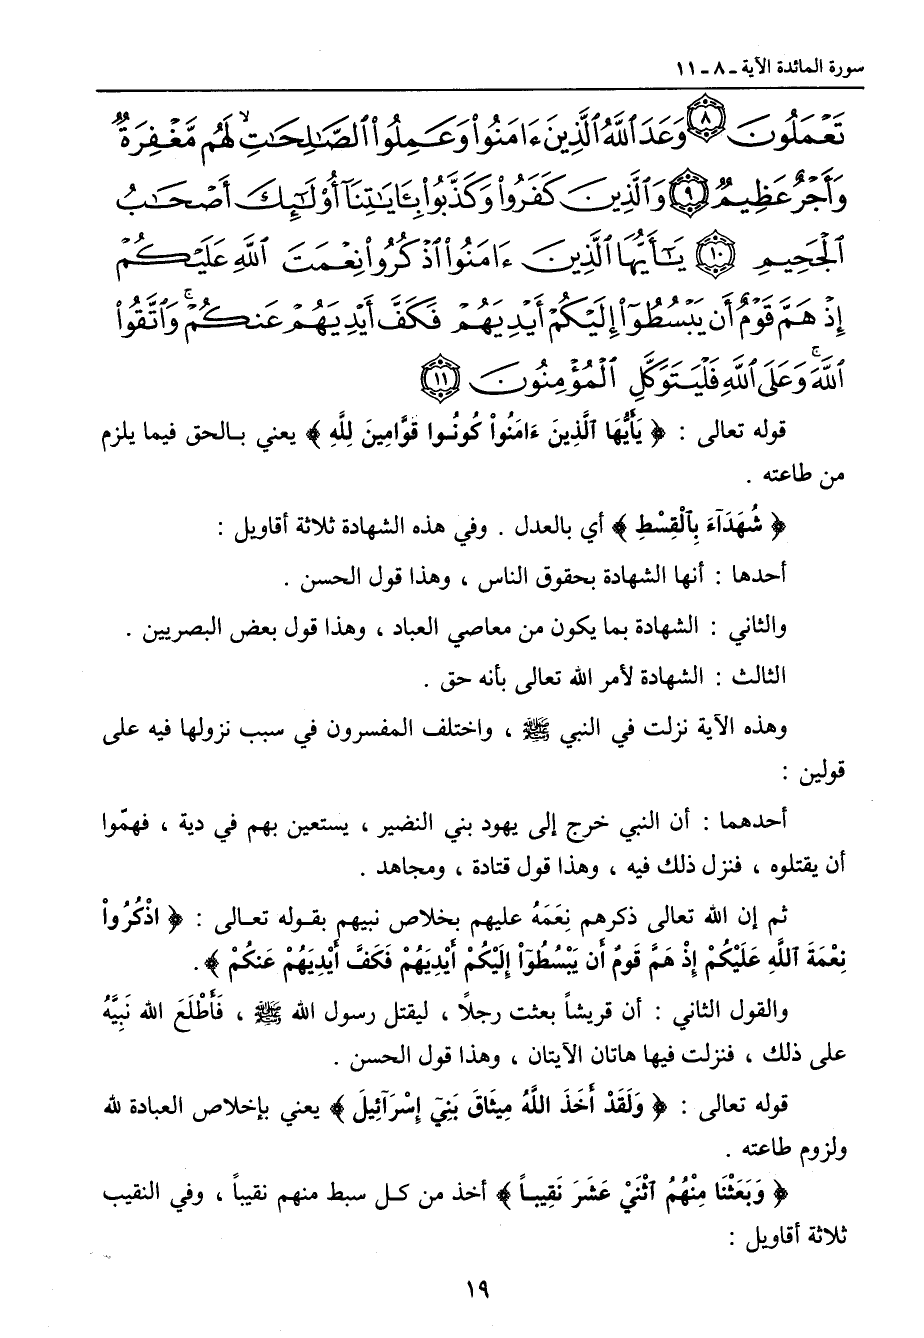 سورة المائدة الآية ـ ٨ ـ ١١
تَعْمَلُونَ ٨ وَعَدَ ٱللَّهُ ٱلَّذِينَ ءَامَنُوا۟ وَعَمِلُوا۟ ٱلصَّـٰلِحَـٰتِ ۙ لَهُم مَّغْفِرَةٌ
وَأَجْرٌ عَظِيمٌ ٩ وَٱلَّذِينَ كَفَرُوا۟ وَكَذَّبُوا۟ بِـَٔايَـٰتِنَآ أُو۟لَـٰٓئِكَ أَصْحَـٰبُ
ٱلْجَحِيمِ ١٠ يَـٰٓأَيُّهَا ٱلَّذِينَ ءَامَنُوا۟ ٱذْكُرُوا۟ نِعْمَتَ ٱللَّهِ عَلَيْكُمْ
إِذْ هَمَّ قَوْمٌ أَن يَبْسُطُوٓا۟ إِلَيْكُمْ أَيْدِيَهُمْ فَكَفَّ أَيْدِيَهُمْ عَنكُمْ ۖ وَٱتَّقُوا۟
ٱللَّهَ ۚ وَعَلَى ٱللَّهِ فَلْيَتَوَكَّلِ ٱلْمُؤْمِنُونَ ١١
قوله تعالى : ﴿ يَأَيُّهَا ٱلَّذِينَ ءَامَنُواْ كُونُوا قَوَّامِينَ لِلَّهِ ﴾ يعني بالحق فيما يلزم
من طاعته .
﴿ شُهَدَآءَ بِٱلْقِسْطِ ﴾ أي بالعدل . وفي هذه الشهادة ثلاثة أقاويل :
أحدها : أنها الشهادة بحقوق الناس ، وهذا قول الحسن .
والثاني : الشهادة بما يكون من معاصي العباد ، وهذا قول بعض البصريين .
الثالث : الشهادة لأمر الله تعالى بأنه حق .
وهذه الآية نزلت في النبي ﷺ ، واختلف المفسرون في سبب نزولها فيه على
قولين :
أحدهما : أن النبي خرج إلى يهود بني النضير ، يستعين بهم في دية ، فهمّوا
أن يقتلوه ، فنزل ذلك فيه ، وهذا قول قتادة ، ومجاهد .
ثم إن الله تعالى ذكرهم نِعَمَهُ عليهم بخلاص نبيهم بقوله تعالى : ﴿ اذْكُرُواْ
نِعْمَةَ ٱللَّهِ عَلَيْكُمْ إِذْ هَمَّ قَومٌ أَن يَبْسُطُوٓاْ إِلَيْكُمْ أَيْدِيَهُمْ فَكَفَّ أَيْدِيَهُمْ عَنكُمْ ﴾ .
والقول الثاني : أن قريشاً بعثت رجلاً ، ليقتل رسول الله ﷺ ، فَأَطْلَعَ الله نَبِيَّهُ
على ذلك ، فنزلت فيها هاتان الآيتان ، وهذا قول الحسن .
قوله تعالى : ﴿ وَلَقَدْ أَخَذَ اللَّهُ مِيثَاقَ بَنِيٓ إِسْرَآئِيلَ ﴾ يعني بإخلاص العبادة لله
ولزوم طاعته .
﴿ وَبَعَثْنَا مِنْهُمُ ٱثْنَيْ عَشَرَ نَقِيباً ﴾ أخذ من كل سبط منهم نقيباً ، وفي النقيب
ثلاثة أقاويل :
١٩